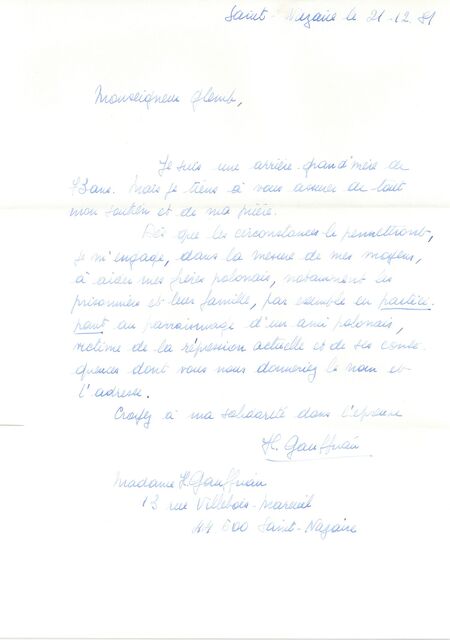 Saint-Nazaire le 21-12.81
Monseigneur Glemb,
Je suis une arrière-grand'mère de
73 ans. Mais je tiens à vous assurer de tout
mon soutien et de ma prière.
Dès que les circonstances le permettront,
je m'engage, dans la mesure de mes moyens,
à aider mes frères polonais, notamment les
prisonniers et leur famille, par exemple en partici-
pant au parrainage d'un ami polonais,
victime de la répression actuelle et de ses consé-
quences dont vous nous donneriez le nom et
l'adresse.
Croyez à ma solidarité dans l'épreuve
H. Gauffriau
Madame H. Gauffriau
13 rue Villebois-Mareuil
44 600 Saint-Nazaire